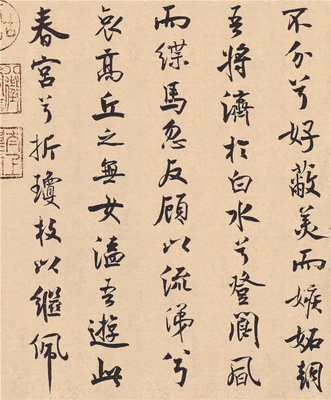 不分兮好蔽美而嫉妬朝
吾將濟於白水兮登閬風
而緤馬忽反顧以流涕兮
哀高丘之無女溘吾遊此
春宮兮折瓊枝以繼佩